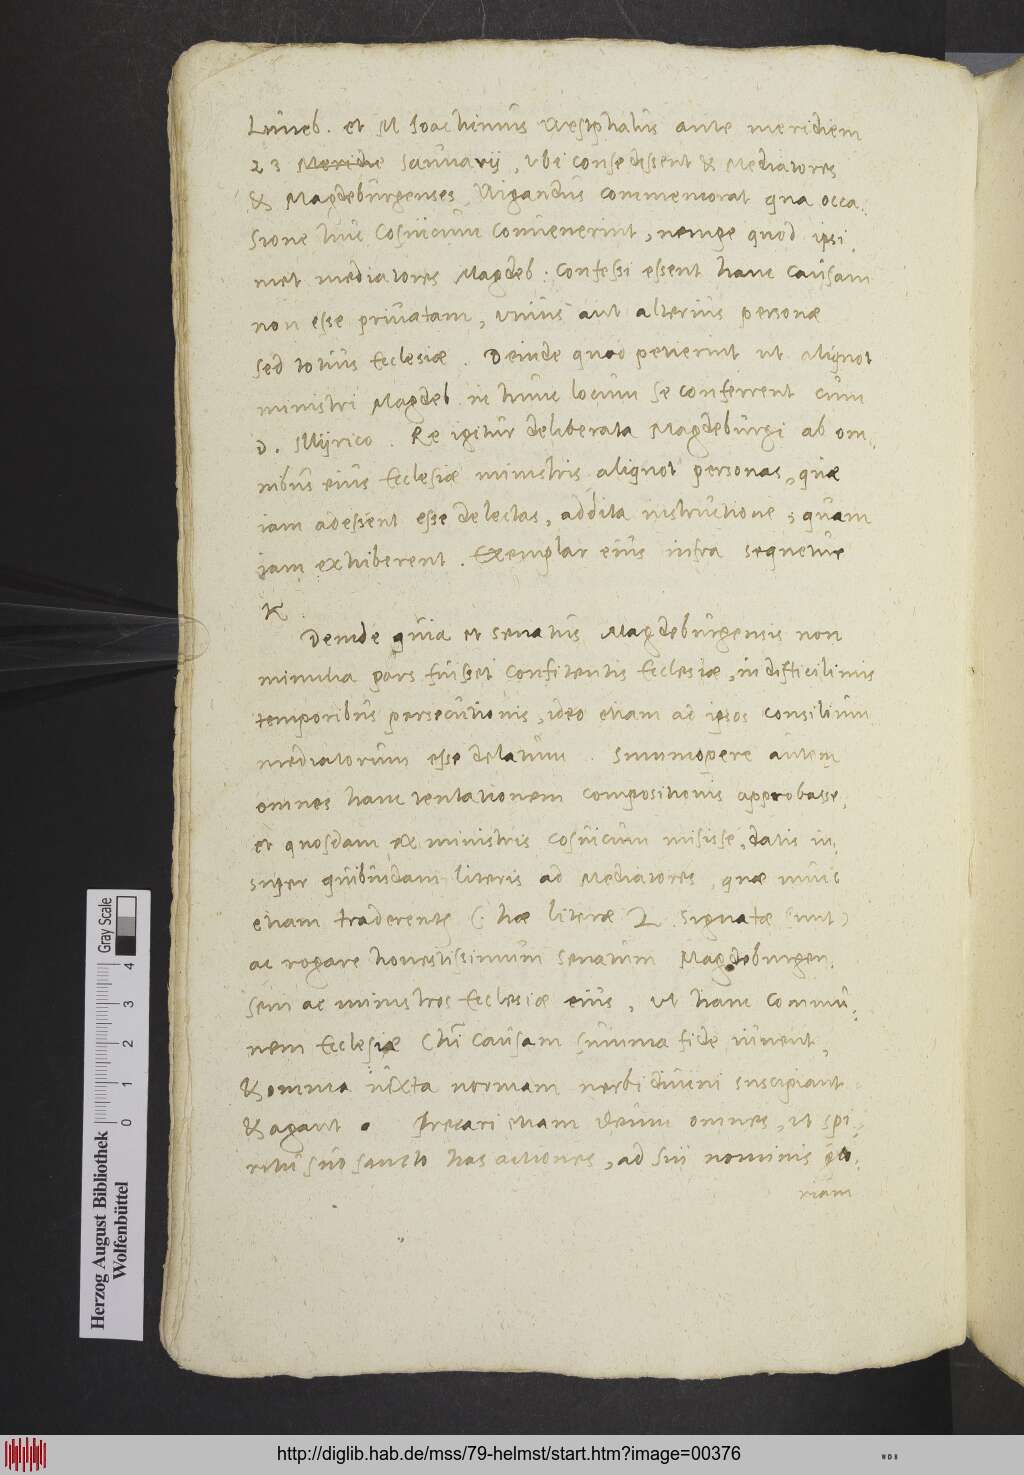 Luneb. et M Ioachimus Westphalus ante meridiem
23 Meridie Ianuarij, ubi consedissent & Mediatores
& Magdeburgenses, Wigandus commemorat qua occa-
sione huc Cosuicum convenerint, nempe quod ipsi
met mediatores Magdeb: confessi essent hanc causam
non esse privatam, unius aut alterius personæ
sed totius Ecclesiæ. Deinde quod petierint ut aliquot
ministri Magdeb in hunc locum se conferrent cum
D. Myrico. Re igitur deliberata Magdeburgi ab om-
nibus eius Ecclesiæ ministris aliquot personas, quæ
iam adessent esse delectas, addita instructione, quam
iam exhiberent. Exemplar eius infra sequetur
K
Deinde quia et senatus Magdeburgensis non
minima pars fuisset confitentis Ecclesiæ, in difficilimis
temporibus persecutionis, ideo etiam ad ipsos consilium
mediatorum esse delatum. Summopere autem
omnes hanc tentationem compositionis approbasse,
et quosdam ex ministris Cosuicum misisse, datis in-
super quibusdam literis ad Mediatores, quæ nunc
etiam traderent (: hæ literæ L. signatæ sunt)
ac rogare honestissimum senatum Magdeburgen-
sem ac ministros Ecclesiæ eius, ut hanc commu-
nem Ecclesiæ Chri causam summa fide iuvent,
& omnia iuxta normam verbi divini suscipiant
& agant. Precari etiam Deum omnes, ut spi-
ritu suo sancto has actiones, ad sui nominis glo-
riam
Herzog August Bibliothek
Wolfenbüttel
Gray Scale
0 1 2 3 4
http://diglib.hab.de/mss/79-helmst/start.htm?image=00376
WDB